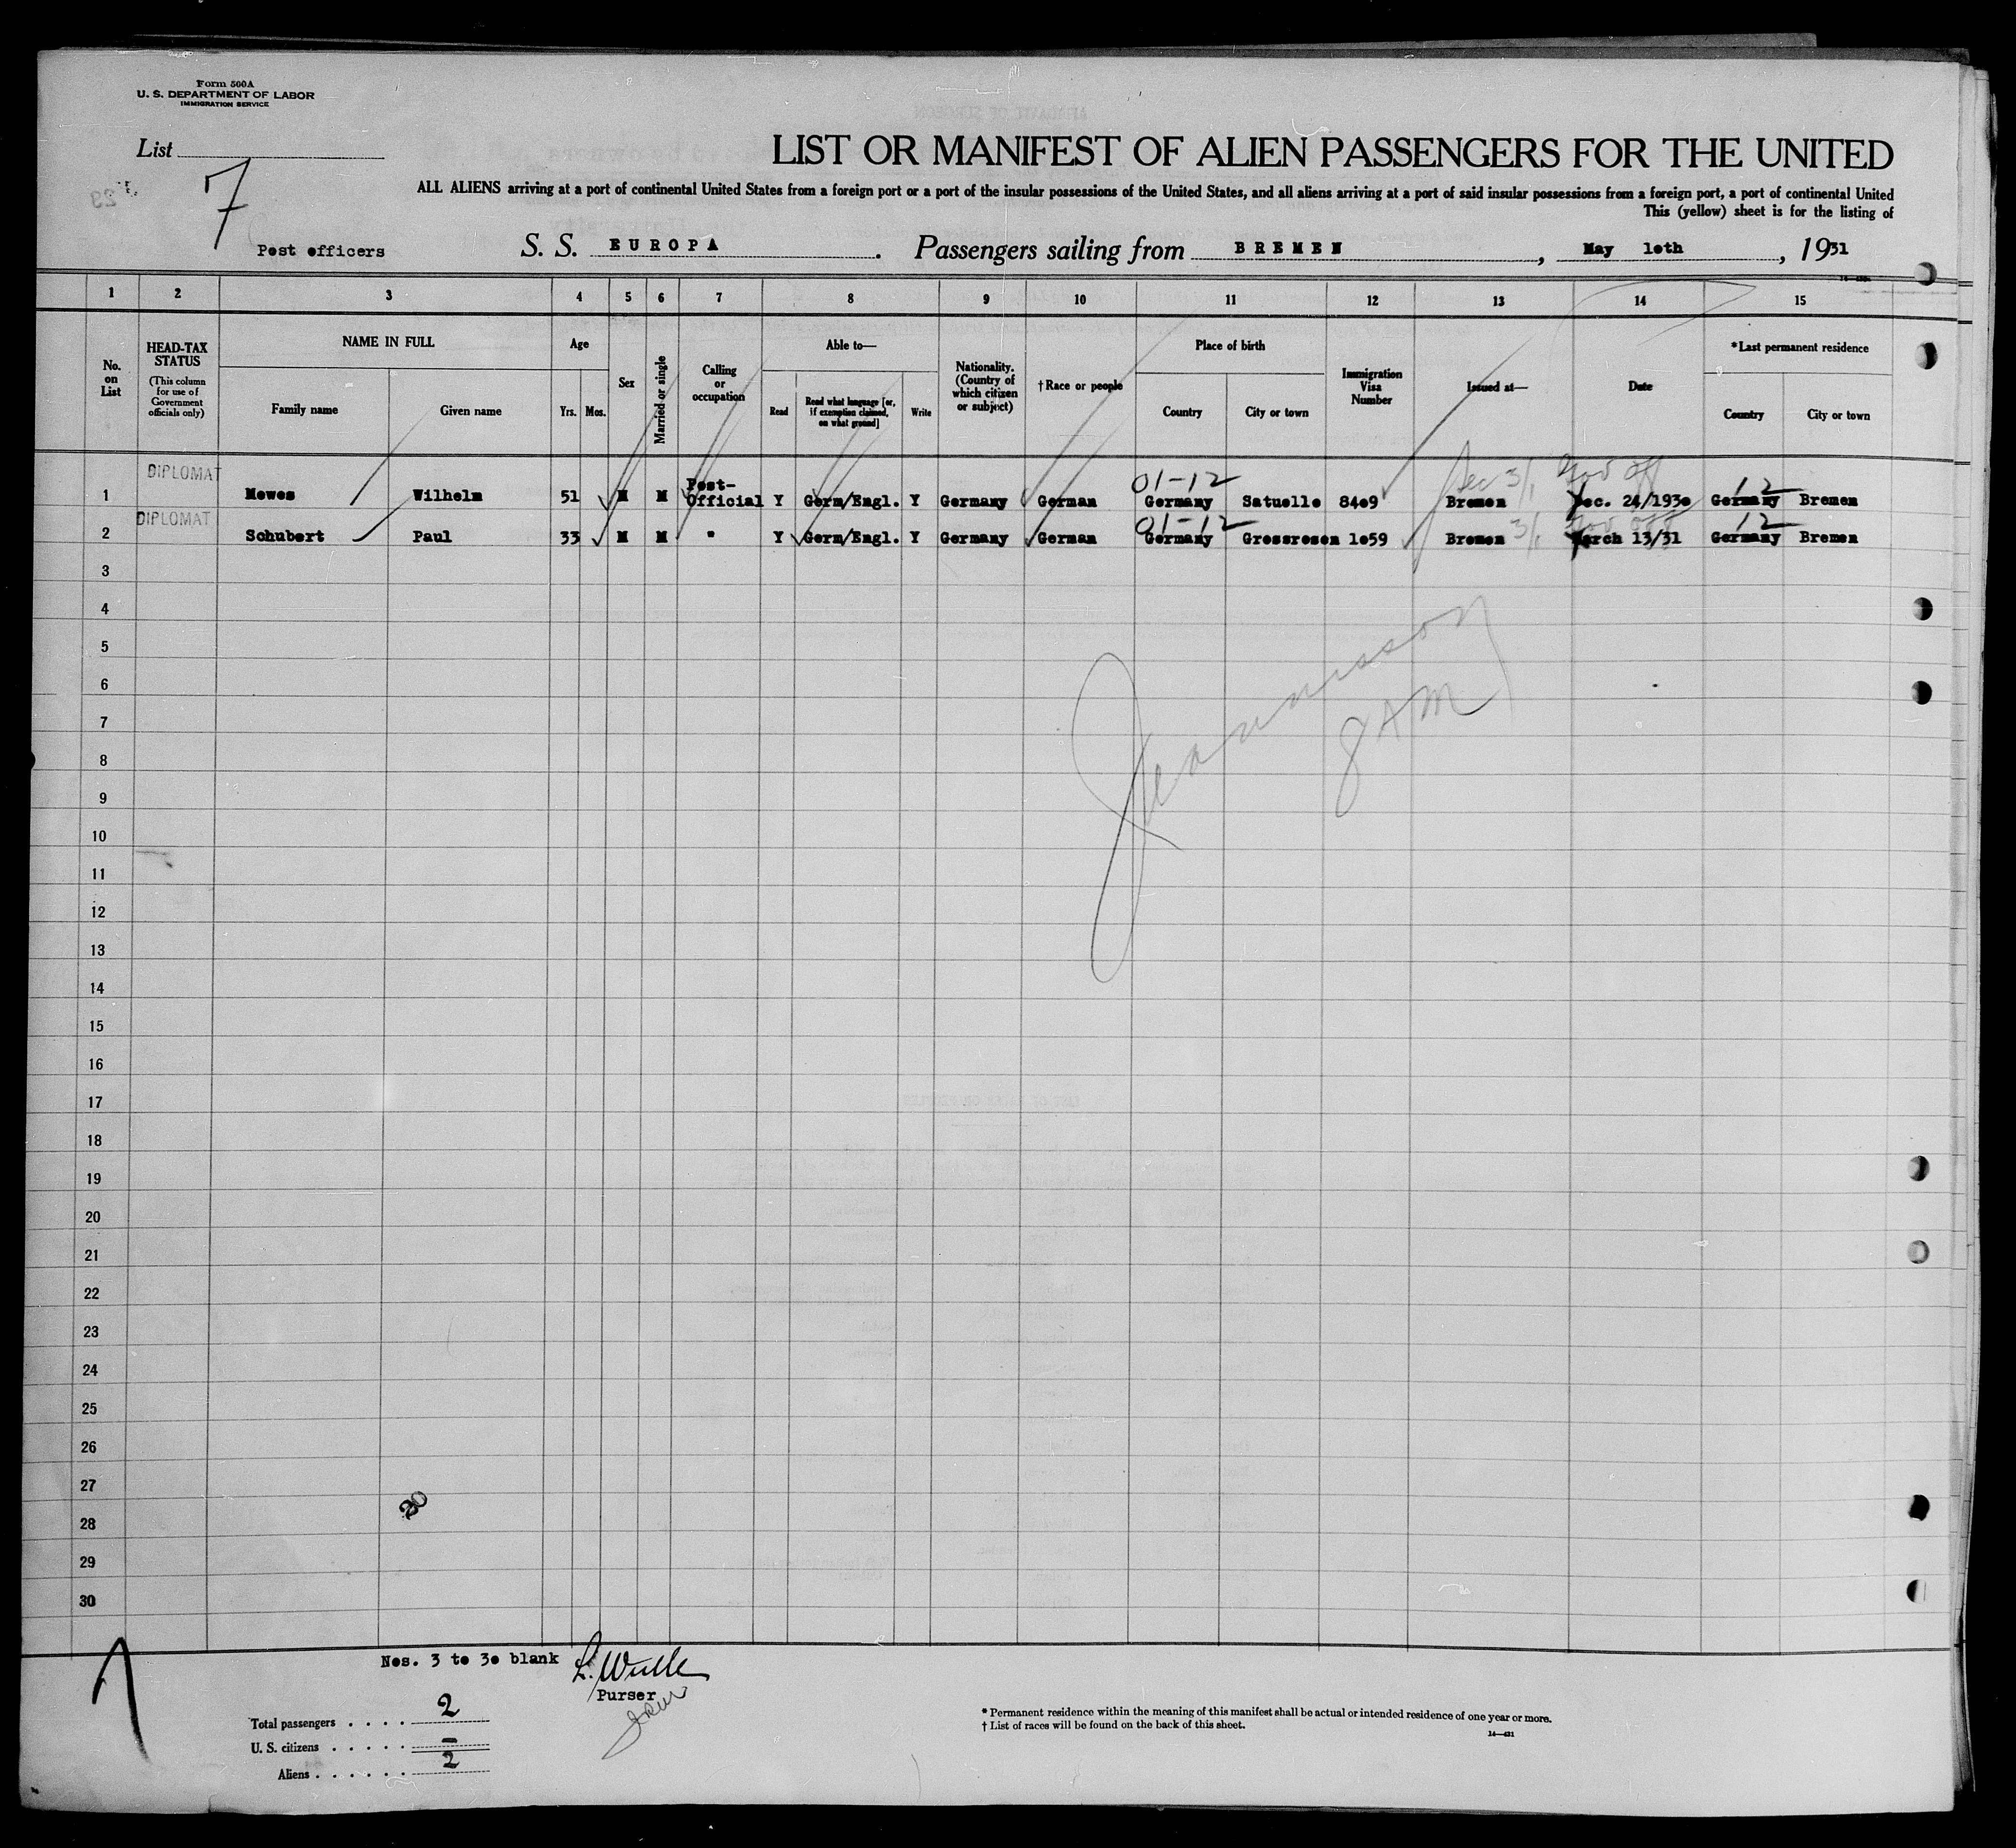 Form 500A
U. S. DEPARTMENT OF LABOR
IMMIGRATION SERVICE
List
7
LIST OR MANIFEST OF ALIEN PASSENGERS FOR THE UNITED
ALL ALIENS arriving at a port of continental United States from a foreign port or a port of the insular possessions of the United States, and all aliens arriving at a port of said insular possessions from a foreign port, a port of continental United
This (yellow) sheet is for the listing of
Post officers S. S. EUROPA. Passengers sailing from BREMEN, May 1oth, 1931
1 2 3 4 5 6 7 8 9 10 11 12 13 14 15
No. on List
HEAD-TAX STATUS
(This column for use of Government officials only)
NAME IN FULL
Family name Given name
Age
Yrs. Mos.
Sex
Married or single
Calling or occupation
Able to—
Read
Read what language [or, if exemption claimed, on what ground]
Write
Nationality. (Country of which citizen or subject)
†Race or people
Place of birth
Country City or town
Immigration Visa Number
Issued at—
Date
*Last permanent residence
Country City or town
DIPLOMAT 01-12 Dec 3/1 Gov off 12
1 Mewes Wilhelm 51 M M Post-Official Y Germ/Engl. Y Germany German Germany Satuelle 84o9 Bremen Dec. 24/193o Germany Bremen
DIPLOMAT 01-12 3/1 Gov off 12
2 Schubert Paul 33 M M " Y Germ/Engl. Y Germany German Germany Grossresen 1o59 Bremen March 13/31 Germany Bremen
3
4
5
6
7
8
9
10
11
12
13
14
15
16
17
18
19
20
21
22
23
24
25
26
27
28
29
30
8 AM
30
Nos. 3 to 3o blank
Purser
Total passengers . . . . 2
U. S. citizens . . . . . –
Aliens . . . . . . 2
* Permanent residence within the meaning of this manifest shall be actual or intended residence of one year or more.
† List of races will be found on the back of this sheet.
14—431